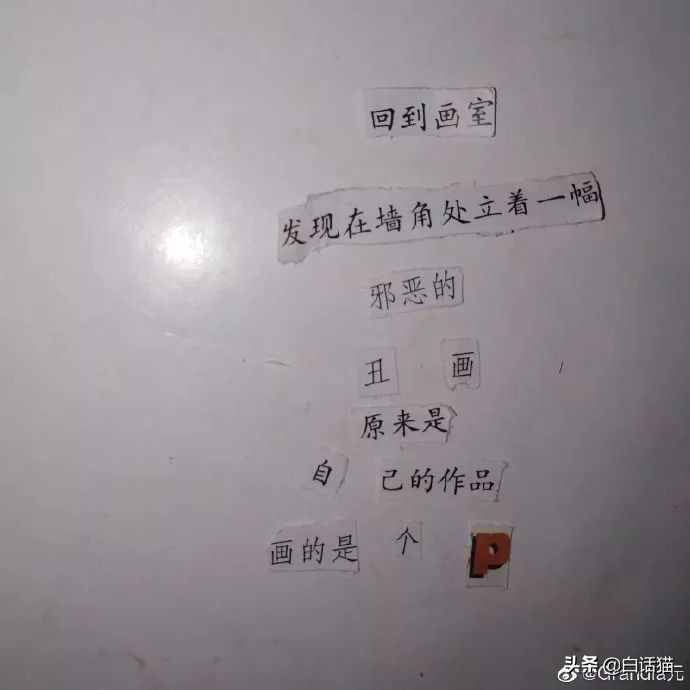 回到画室
发现在墙角处立着一幅
邪恶的
丑 画
原来是
自 己的作品
画的是 个 P
头条 @白话猫
@Grandia元